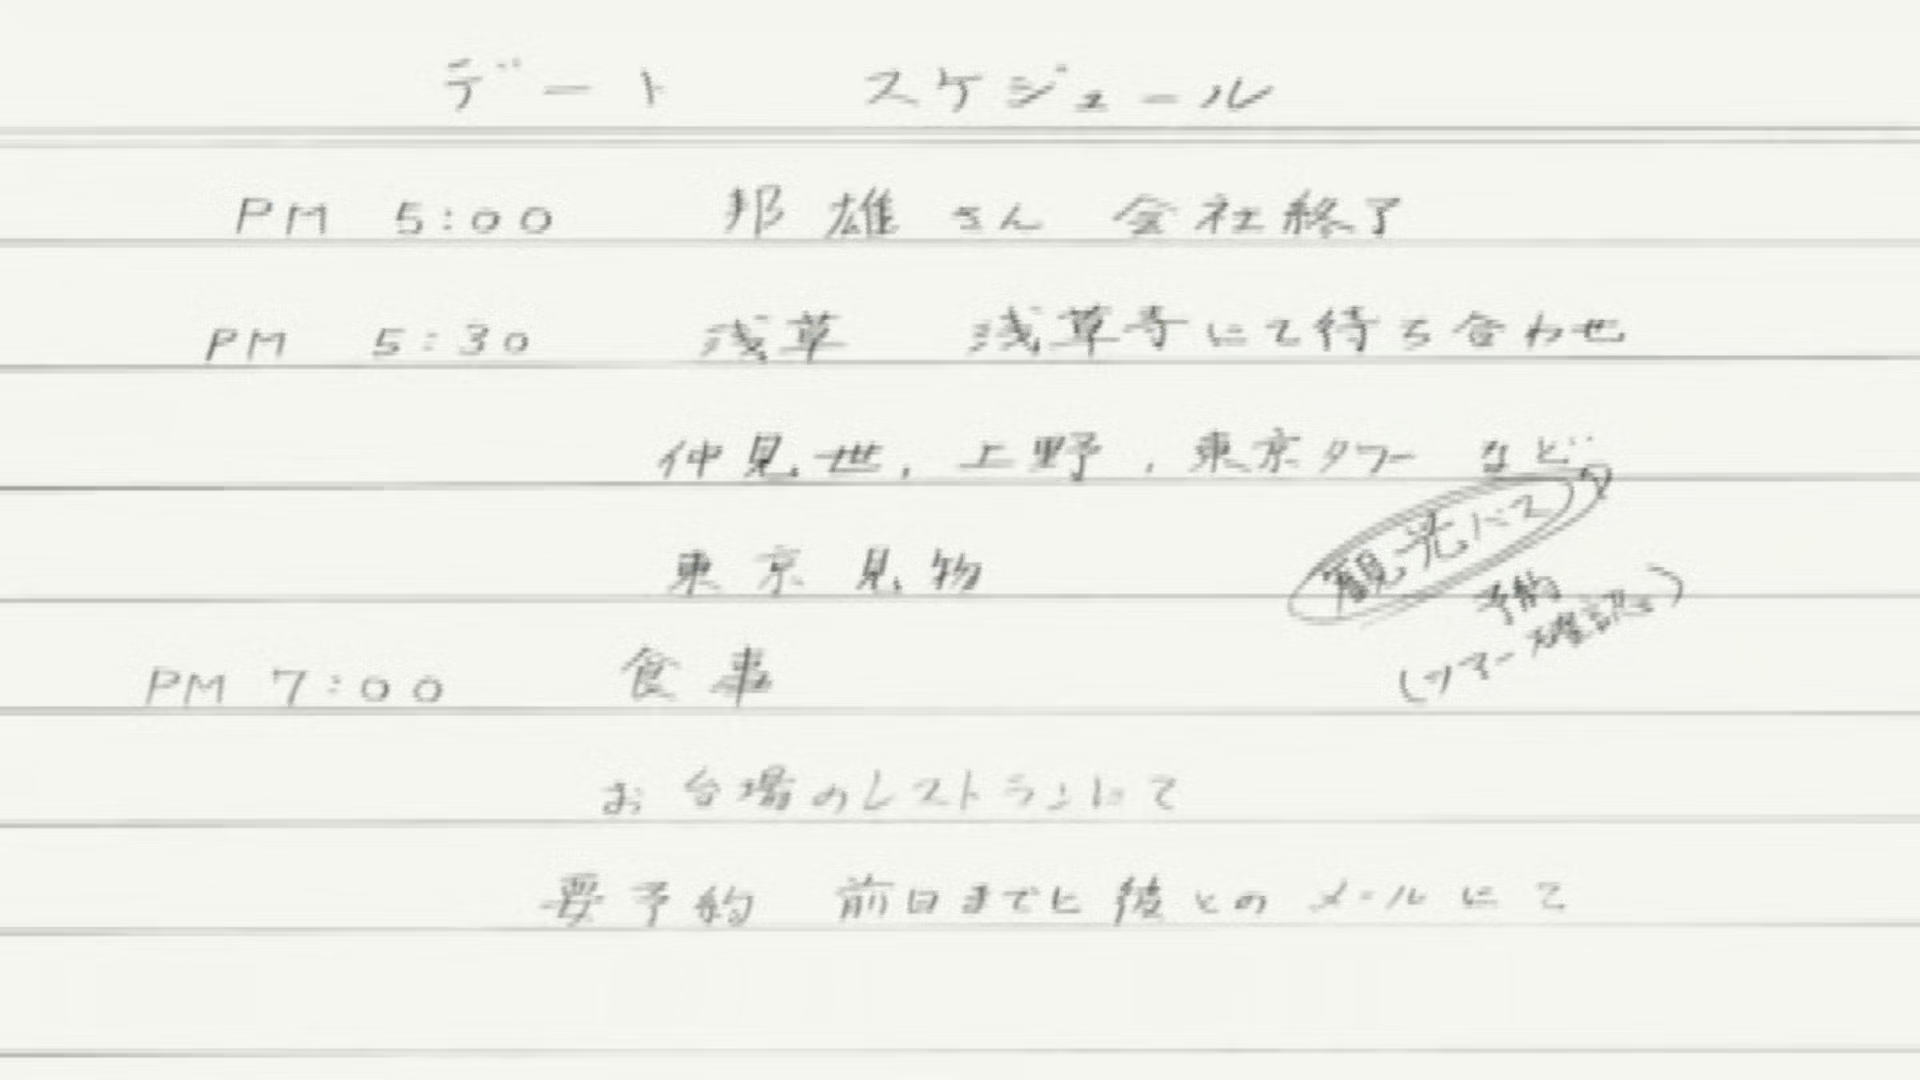 デート スケジュール
PM 5:00 邦雄さん 会社終了
PM 5:30 浅草 浅草寺にて待ち合わせ
仲見世、上野、東京タワー など
東京見物
観光バス
予約
(ツアー確認)
PM 7:00 食事
お台場のレストランにて
要予約 前日までに彼とのメールにて